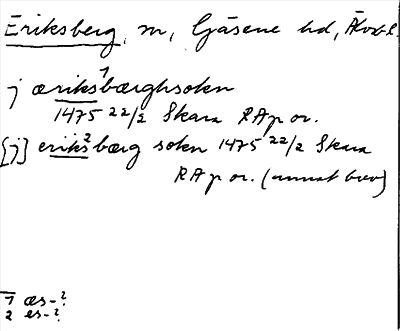 Eriksberg, sn, Gäsene hd, Älvsb. l.
j æriks¹bærghsokn
1475 22/2 Skara RAp or.
[j] eriks²bærg sokn 1475 22/2 Skara
RAp or. (annat brev)
1 æs-?
2 es-?